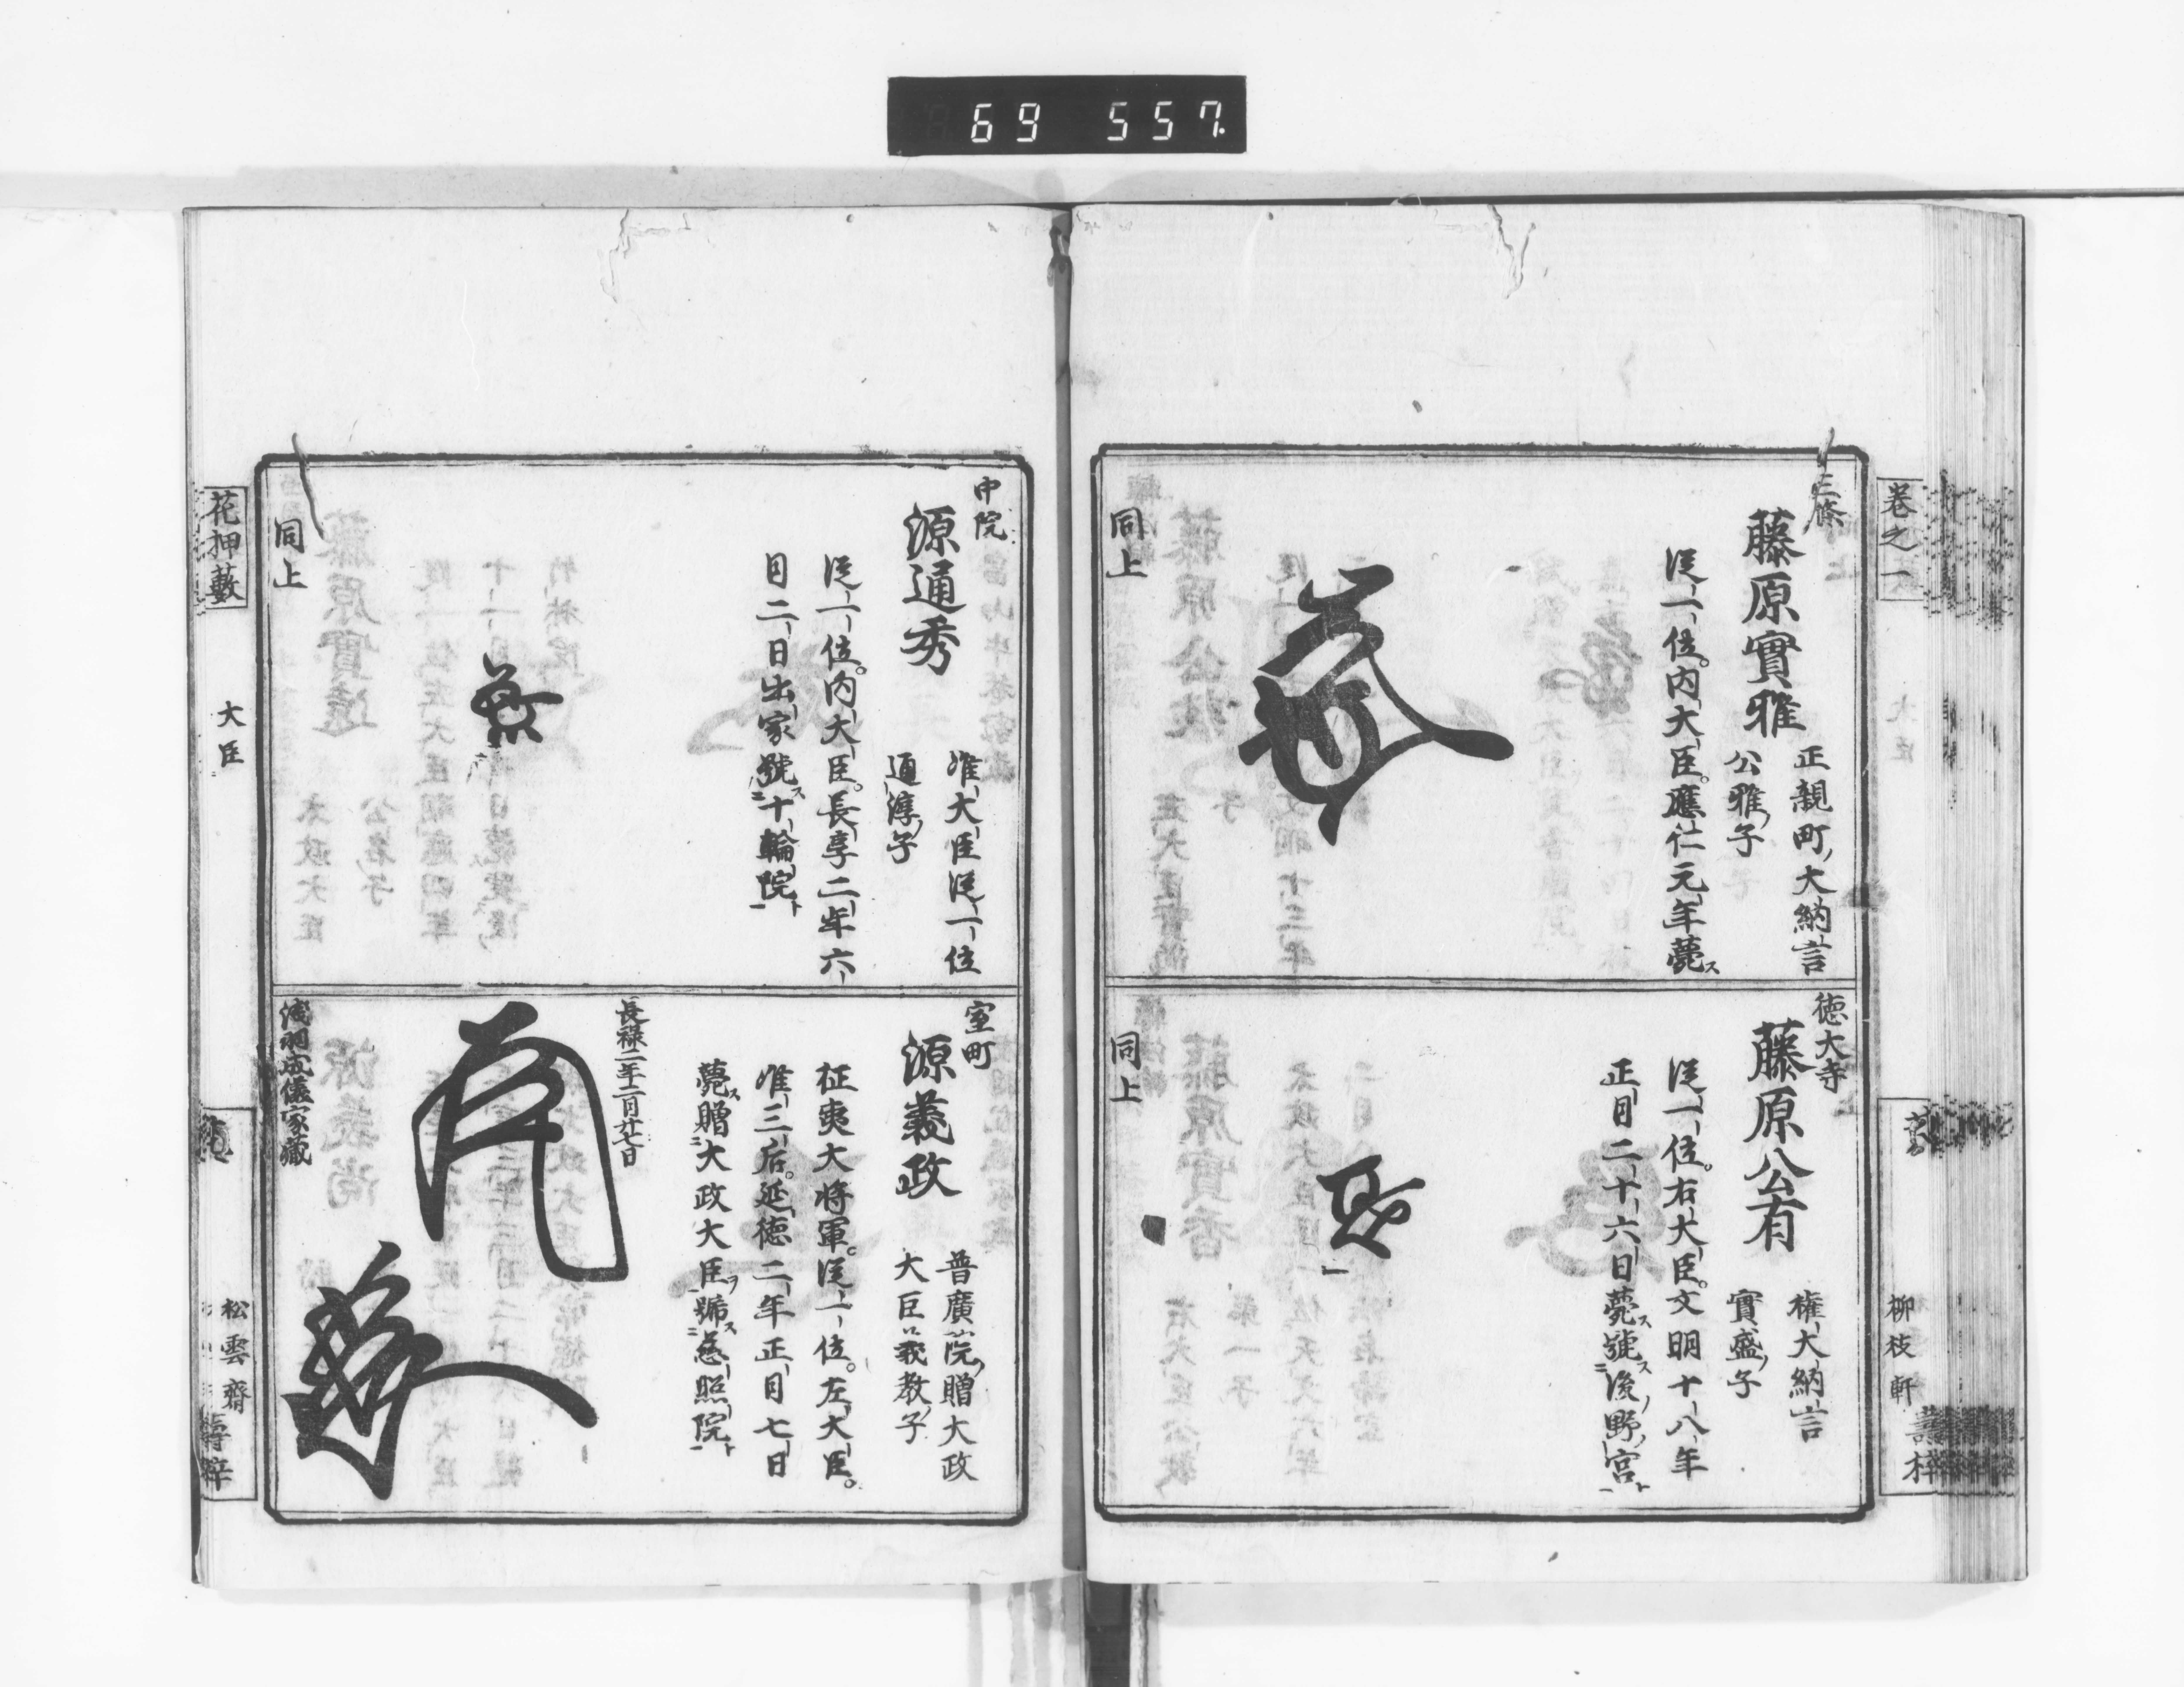 69 557.
卷之一
柳枝軒
三條
藤原實雅
正親町大納言
公雅子
從一位。内大臣。應仁元年薨ス
同上
德大寺
藤原公有
權大納言
實盛子
從一位。右大臣。文明十八年
正月二十六日薨ス號ス後野宮ト
同上
中院
源通秀
准大臣從一位
通淳子
從一位。内大臣。長享二年六
月二日出家號ス十輪院ト
同上
室町
源義政
普廣院贈大政
大臣義教子
征夷大将軍。從一位。左大臣。
准三后。延德二年正月七日
薨ス贈大政大臣ヲ號ス慈照院ト
長祿二年二月廿七日
浅羽成儀家藏
花押藪
大臣
松雲齋